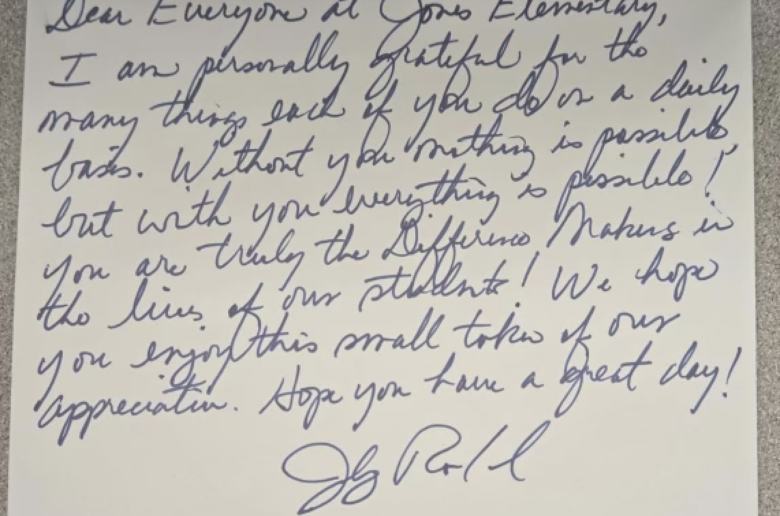 Dear Everyone at Jones Elementary,
I am personally grateful for the
many things each of you do on a daily
basis. Without you nothing is possible,
but with you everything is possible!
You are truly the Difference Makers in
the lives of our students! We hope
you enjoy this small token of our
appreciation. Hope you have a great day!